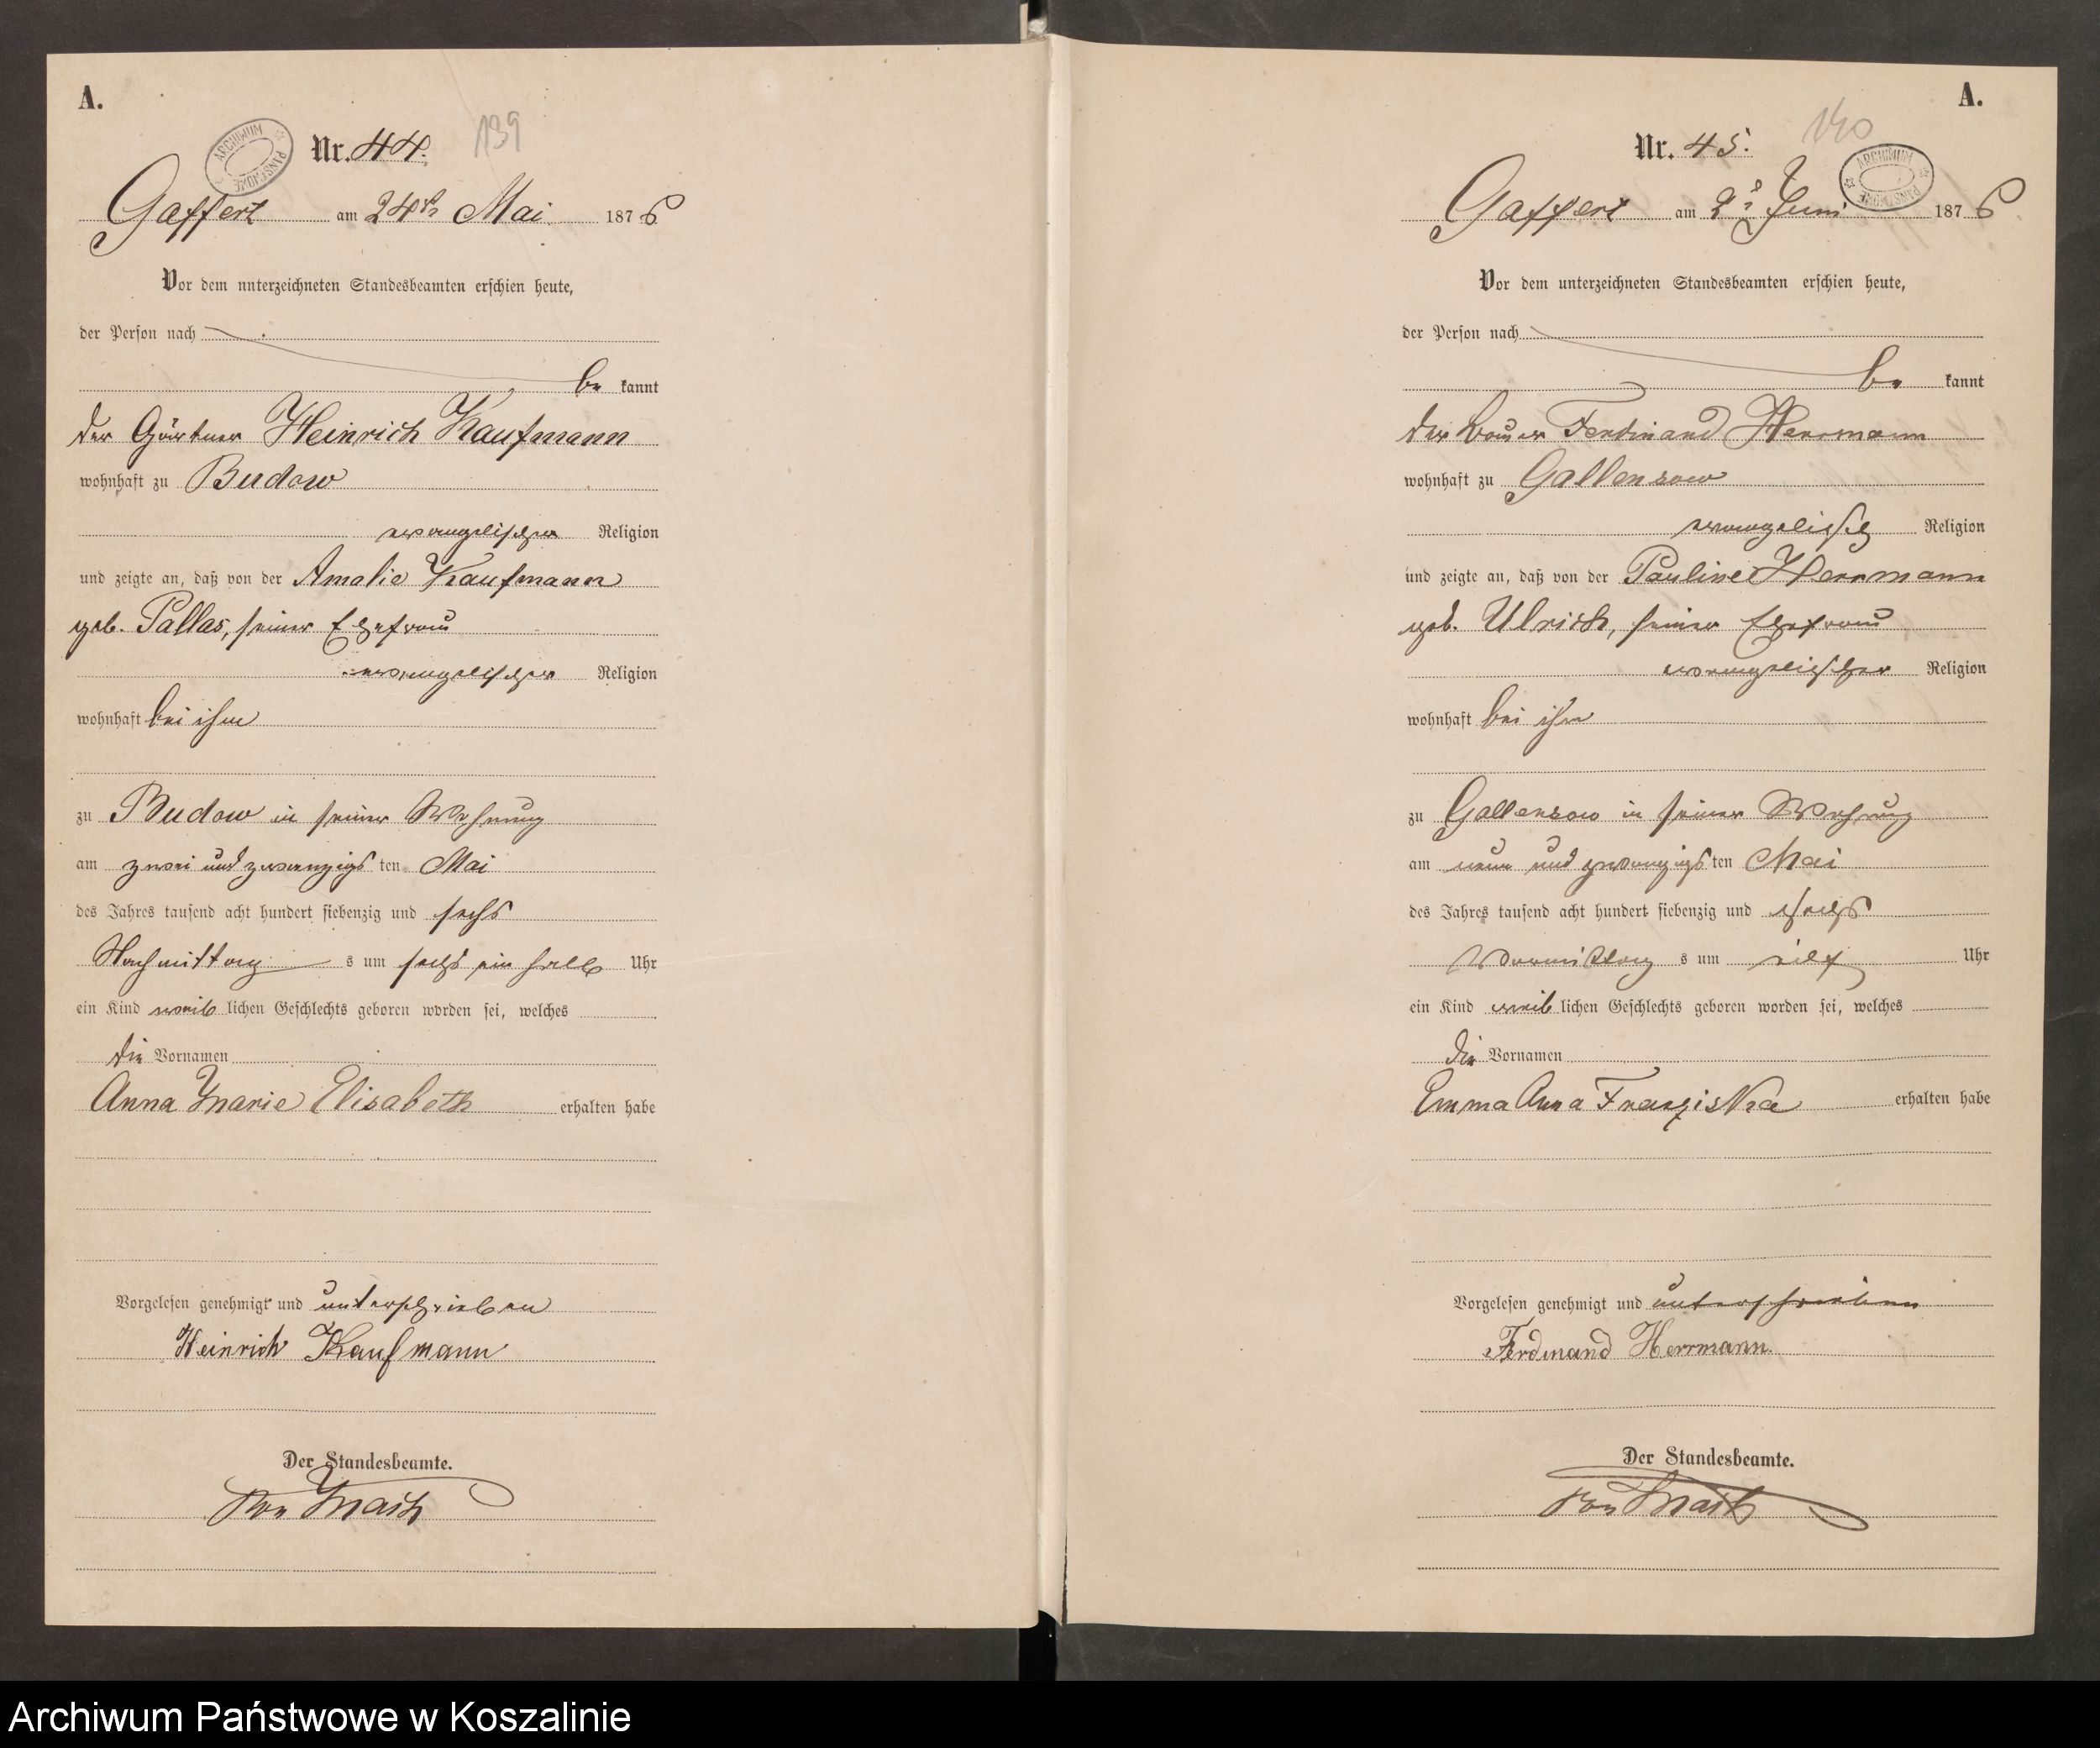 A.
139
ARCHIWUM PAŃSTWOWE
Nr. 44.
Gaffert am 24t Mai 1876
Vor dem nnterzeichneten Standesbeamten erschien heute,
der Person nach
be kannt
der Gärtner Heinrich Kaufmann
wohnhaft zu Budow
evangelischer Religion
und zeigte an, daß von der Amalie Kaufmann
geb. Pallas, seiner Ehefrau
evangelischer Religion
wohnhaft bei ihm
zu Budow in seiner Wohnung
am zwei und zwanzigs ten Mai
des Jahres tausend acht hundert siebenzig und sechs
Nachmittag s um sechs ein halb Uhr
ein Kind weib lichen Geschlechts geboren worden sei, welches
die Vornamen
Anna Marie Elisabeth erhalten habe
Vorgelesen genehmigt und unterschrieben
Heinrich Kaufmann
Der Standesbeamte.
A.
140
Nr. 45.
ARCHIWUM PAŃSTWOWE
Gaffert am 2 Juni 1876
Vor dem unterzeichneten Standesbeamten erschien heute,
der Person nach
be kannt
der Bauer Ferdinand Herrmann
wohnhaft zu Gallensow
evangelisch Religion
und zeigte an, daß von der Pauline Herrmann
geb. Ulrich, seiner Ehefrau
evangelischer Religion
wohnhaft bei ihm
zu Gallensow in seiner Wohnung
am neun und zwanzigs ten Mai
des Jahres tausend acht hundert siebenzig und sechs
Vormittag s um elf Uhr
ein Kind weib lichen Geschlechts geboren worden sei, welches
die Vornamen
Emma Anna Franziska erhalten habe
Vorgelesen genehmigt und unterschrieben
Ferdinand Herrmann.
Der Standesbeamte.
Archiwum Państwowe w Koszalinie